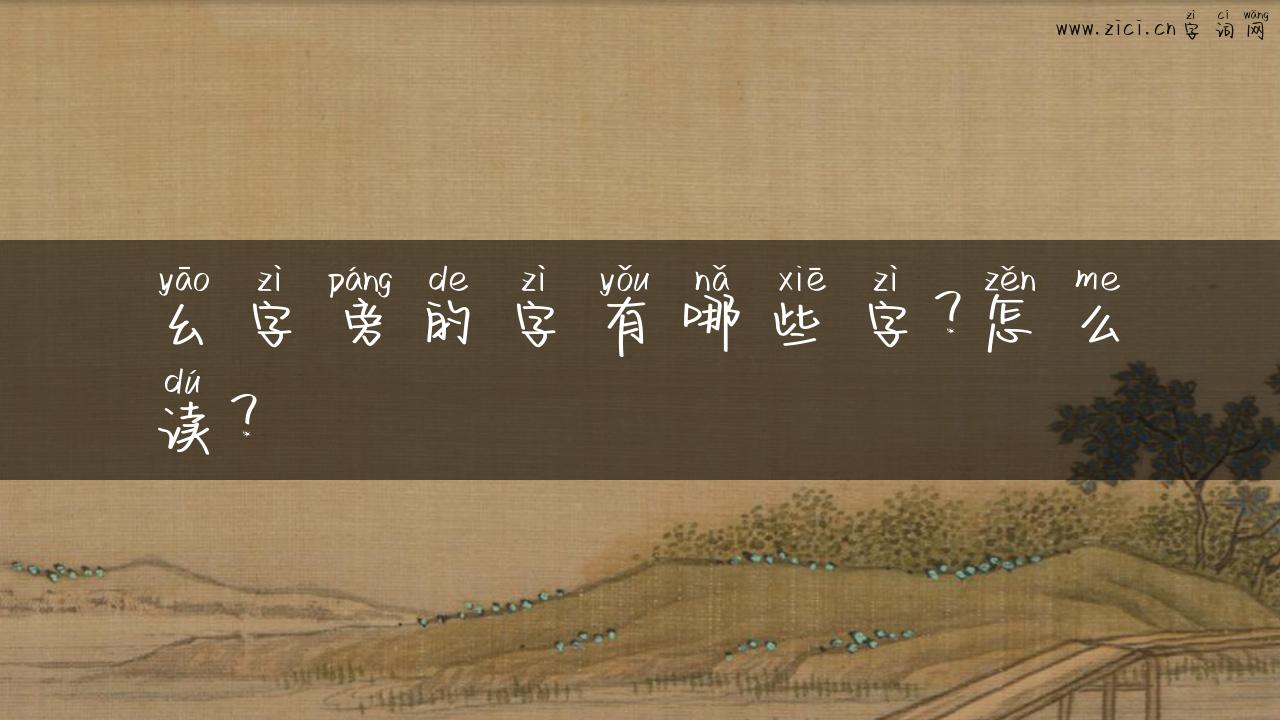 zì cí wǎng
www.zici.cn字词网
yāo zì páng de zì yǒu nǎ xiē zì zěn me
幺字旁的字有哪些字？怎么
dú
读？